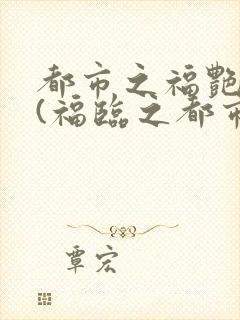 都市之福艷
(福臨之都市
覃宏